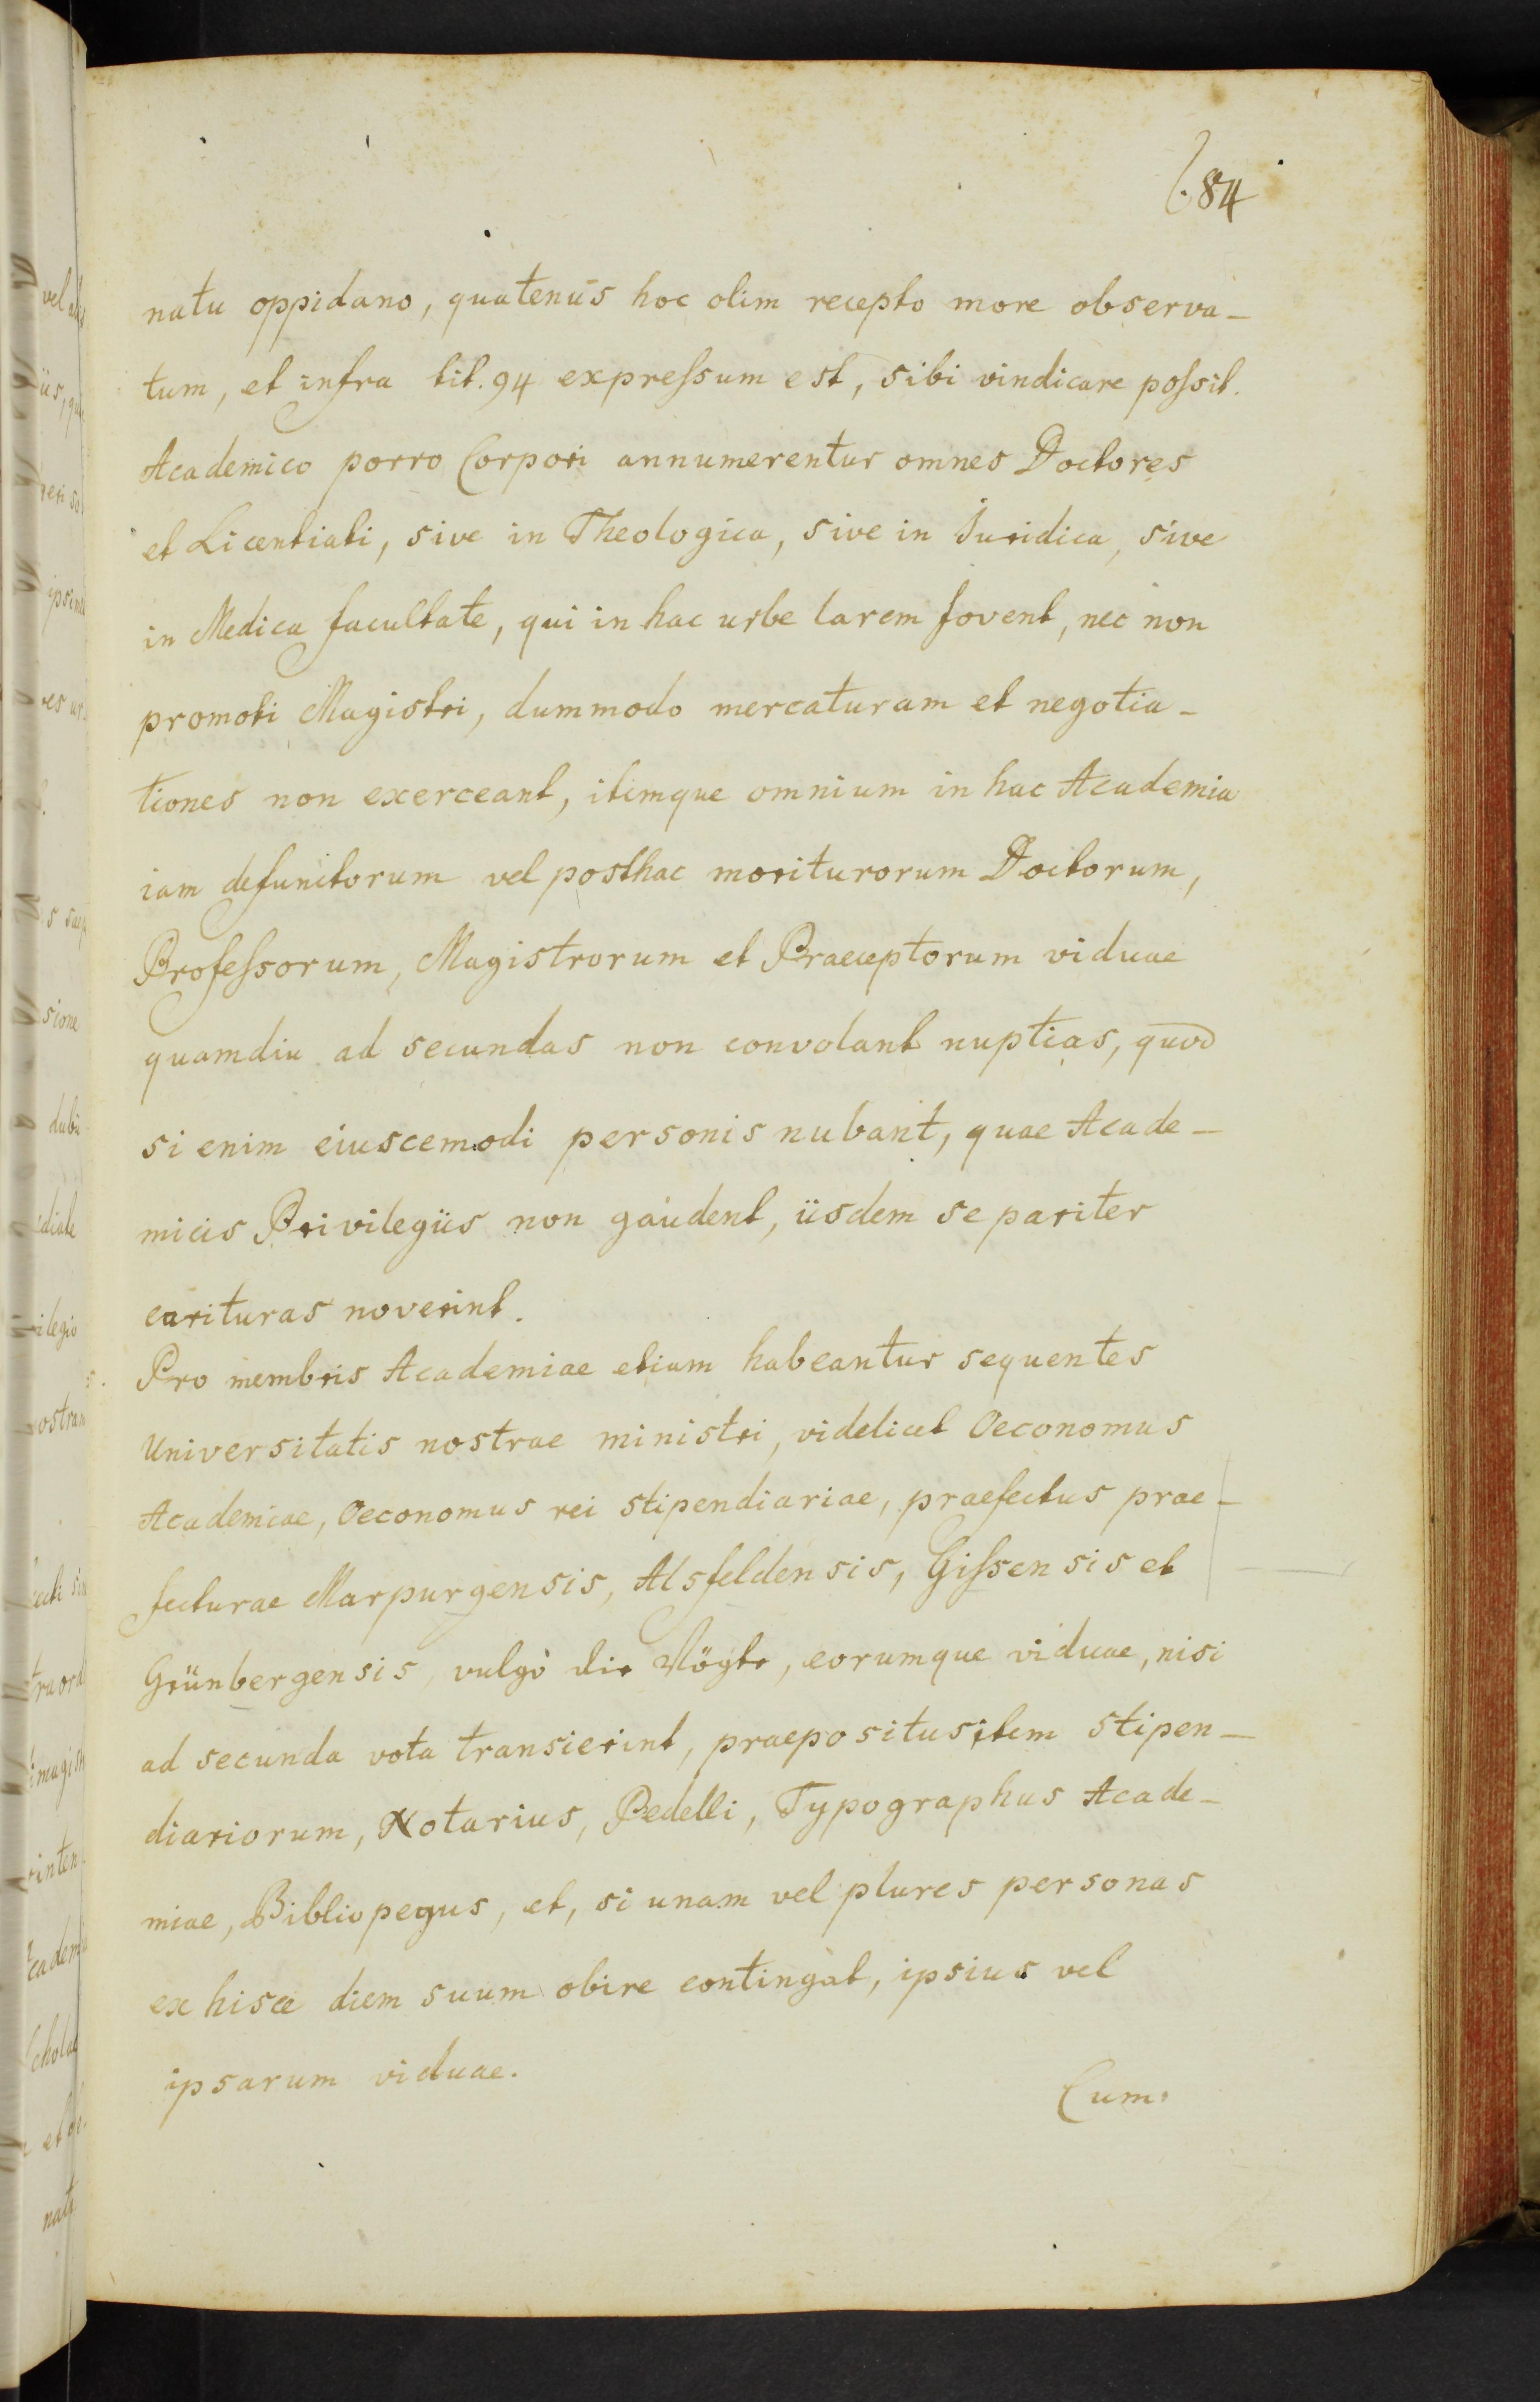 684
natu oppidano, quatenus hoc olim recepto more observa-
tum, et infra tit. 94 expreſsum est, sibi vindicare poſsit.
Academico porro Corpori annumerentur omnes Doctores
et Licentiati, sive in Theologica, sive in Iuridica, sive
in Medica facultate, qui in hac urbe larem fovent, nec non
promoti Magistri, dummodo mercaturam et negotia-
tiones non exerceant, itemque omnium in hac Academia
iam defunctorum vel posthac moriturorum Doctorum,
Profeſsorum, Magistrorum et Praeceptorum viduae
quamdiu ad secundas non convolant nuptias, quod
si enim eiuscemodi personis nubant, quae Acade-
micis Privilegiis non gaudent, iisdem se pariter
carituras noverint.
Pro membris Academiae etiam habeantur sequentes
Universitatis nostrae ministri, videlicet Oeconomus
Academiae, Oeconomus rei stipendiariae, praefectus prae-
fecturae Marpurgensis, Alsfeldensis, Giſsensis et
Grünbergensis, vulgò die Vögte, eorumque viduae, nisi
ad secunda vota transierint, praepositus item stipen-
diariorum, Notarius, Pedelli, Typographus Acade-
miae, Bibliopegus, et, si unam vel plures personas
ex hisce diem suum obire contingat, ipsius vel
ipsarum viduae.
Cum